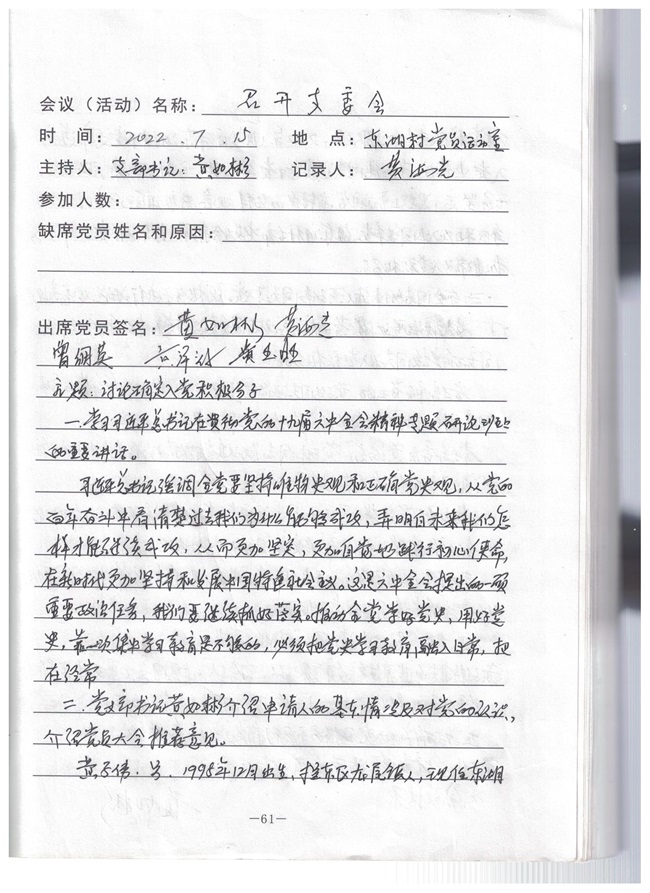 会议（活动）名称：召开支委会
时 间：2022.7.15 地 点：东湖村党员活动室
主持人：支部书记：黄如彬 记录人：黄海光
参加人数：
缺席党员姓名和原因：
出席党员签名：黄如彬 黄海光
曾绷英
主题：讨论确定入党积极分子
一.学习习近平总书记在贯彻党的十九届六中全会精神专题研讨班上
的重要讲话。
习近平总书记强调全党要坚持唯物史观和正确党史观，从党的
百年奋斗中看清楚过去我们为什么能够成功，弄明白未来我们怎
样才能继续成功，从而更加坚定，更加自觉地践行初心使命，
在新时代更加坚持和发展中国特色社会主义。这是六中全会提出的一项
重要政治任务，我们要继续抓好落实。推动全党学好党史，用好党
史，靠一次集中学习教育是不够的，必须把党史学习教育融入日常，把
在经常
二.党支部书记黄如彬介绍申请人的基本情况及对党的认识，
介绍党员大会推荐意见。
黄子伟.男.1995年12月出生，揭东区龙尾镇人，现任东湖
—61—